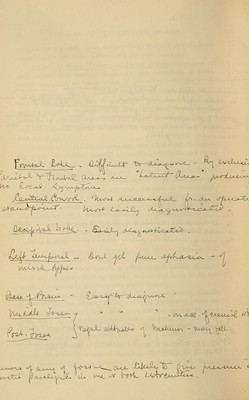 Frontal Lobe - Difficult to diagnose - By exclusion
Parietal & Frontal Areas are "Latent Areas" producing
no local symptoms
Central Convol. Most successful fr. an operative
standpoint Most easily diagnosticated.
Occipital Lobe - Easily diagnosticated.
Left Temporal - Dont get pure aphasia - of
Base of Brain - Easy to diagnose
Middle Fossa " " " - on acc. of cranial
Post. Fossa
of any of fossae are likely to give pressure
in one or both extremities